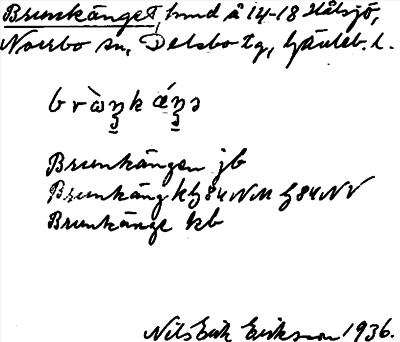 Brunkänget, hmd å 14-18 Hålsjö,
Norrbo sn, Delsbo tg, Gävleb. l.
bràŋkǽŋə
Brunkängen jb
Brunkäng kG84NM G84NV
Brunkänge kb
Nils Erik Eriksson 1936.